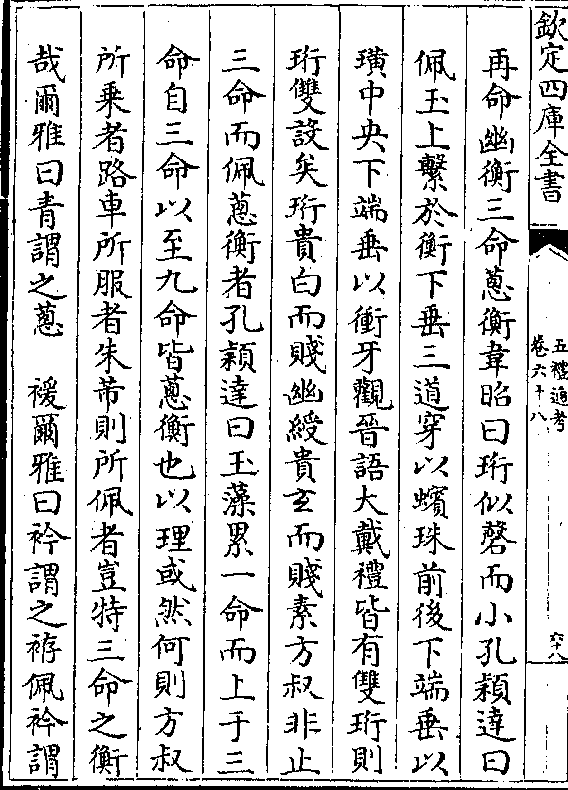 欽定四庫全書
五禮通考
卷六十八
六十八
再命幽衡三命蔥衡韋昭曰珩似磬而小孔穎達曰
佩玉上繫於衡下垂三道穿以蠙珠前後下端垂以
璜中央下端垂以衝牙觀晉語大戴禮皆有雙珩則
珩雙設矣珩貴白而賤幽綬貴玄而賤素方叔非止
三命而佩蔥衡者孔穎達曰玉藻累一命而上于三
命自三命以至九命皆蔥衡也以理或然何則方叔
所乗者路車所服者朱芾則所佩者豈特三命之衡
哉爾雅曰青謂之蔥　禐爾雅曰衿謂之袸佩衿謂